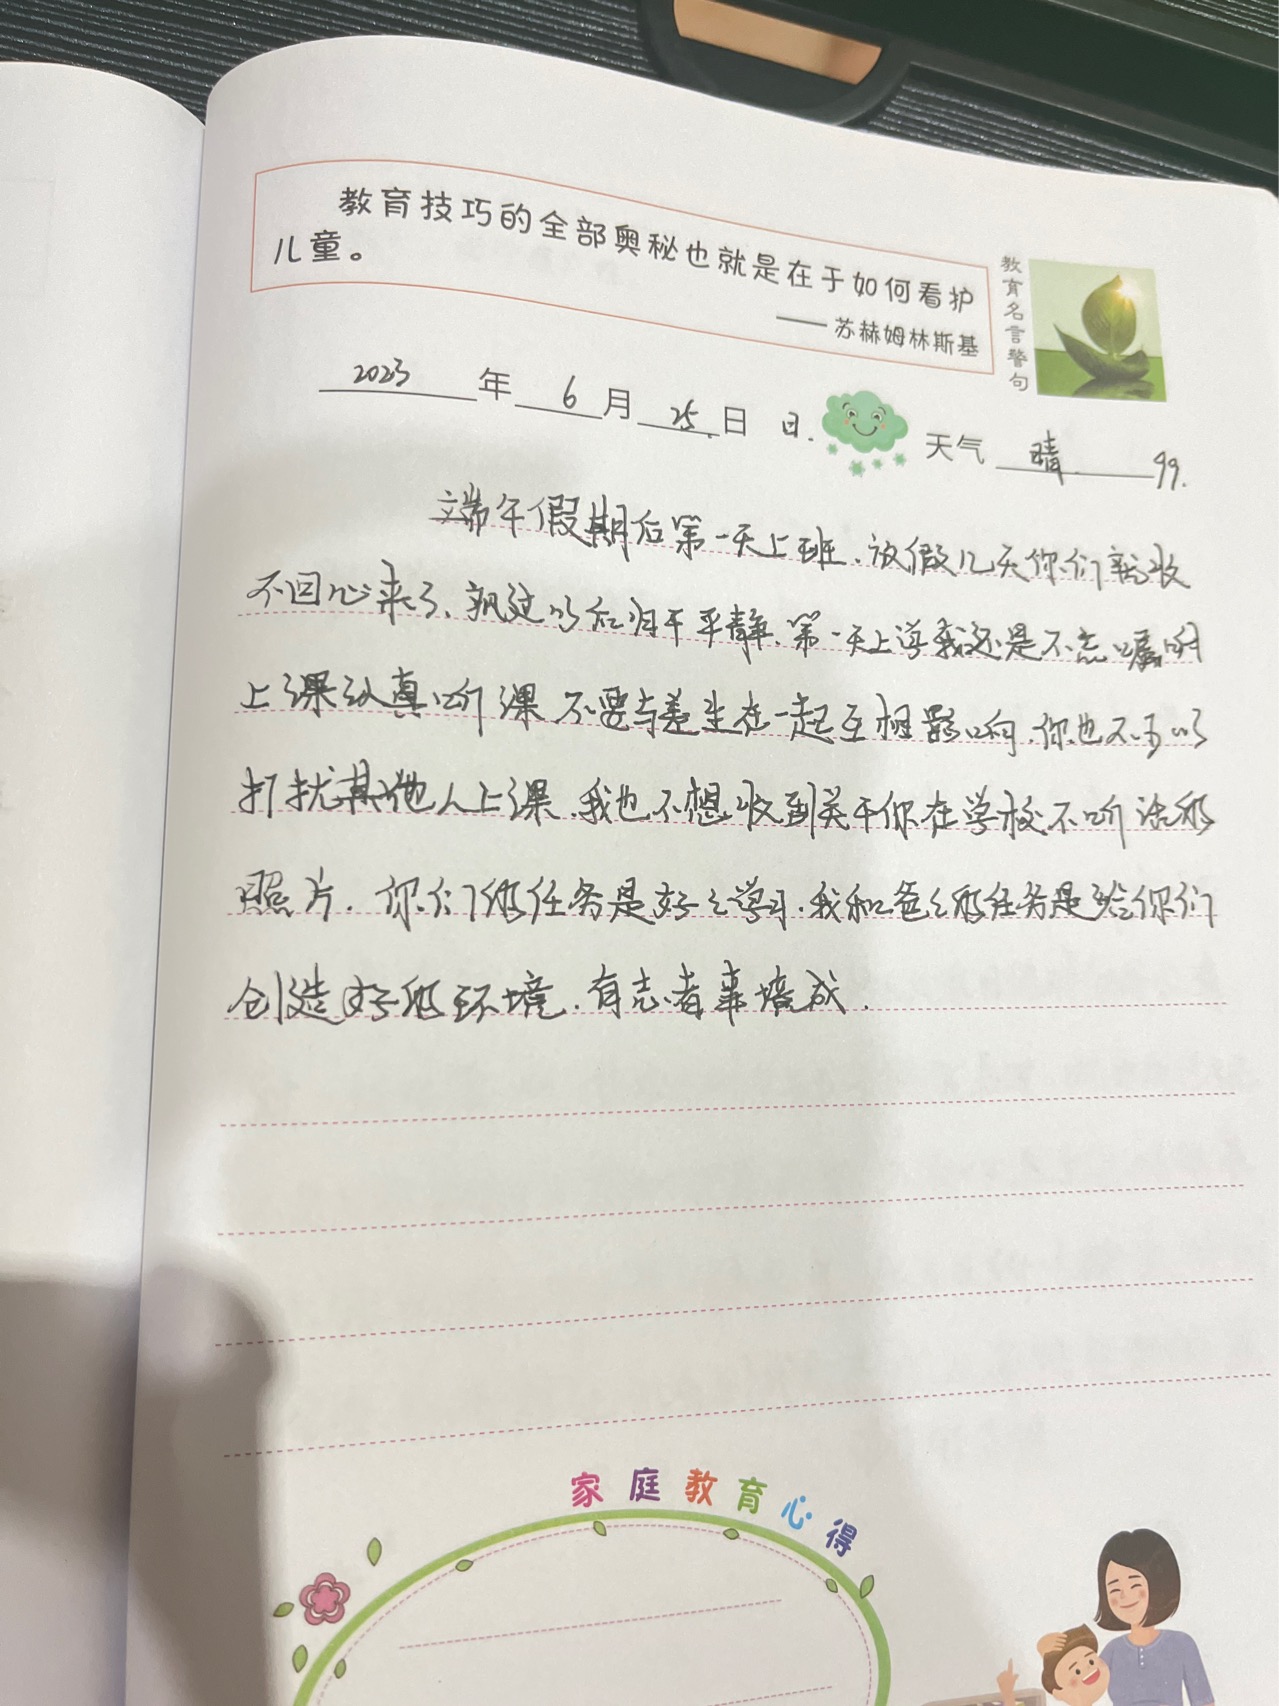 教育技巧的全部奥秘也就是在于如何看护
儿童。
——苏赫姆林斯基
教育名言警句
2023年6月25日 日. 天气 晴 99.
端午假期后第一天上班、放假几天你们就收
不回心来了、疯过以后归于平静、第一天上学我还是不忘嘱咐
上课认真听课 不要与差生在一起互相影响、你也不可以
打扰其他人上课、我也不想收到关于你在学校不听话的
照片. 你们的任务是好々学习、我和爸々的任务是给你们
创造好的环境、有志者事竟成.
家庭教育心得